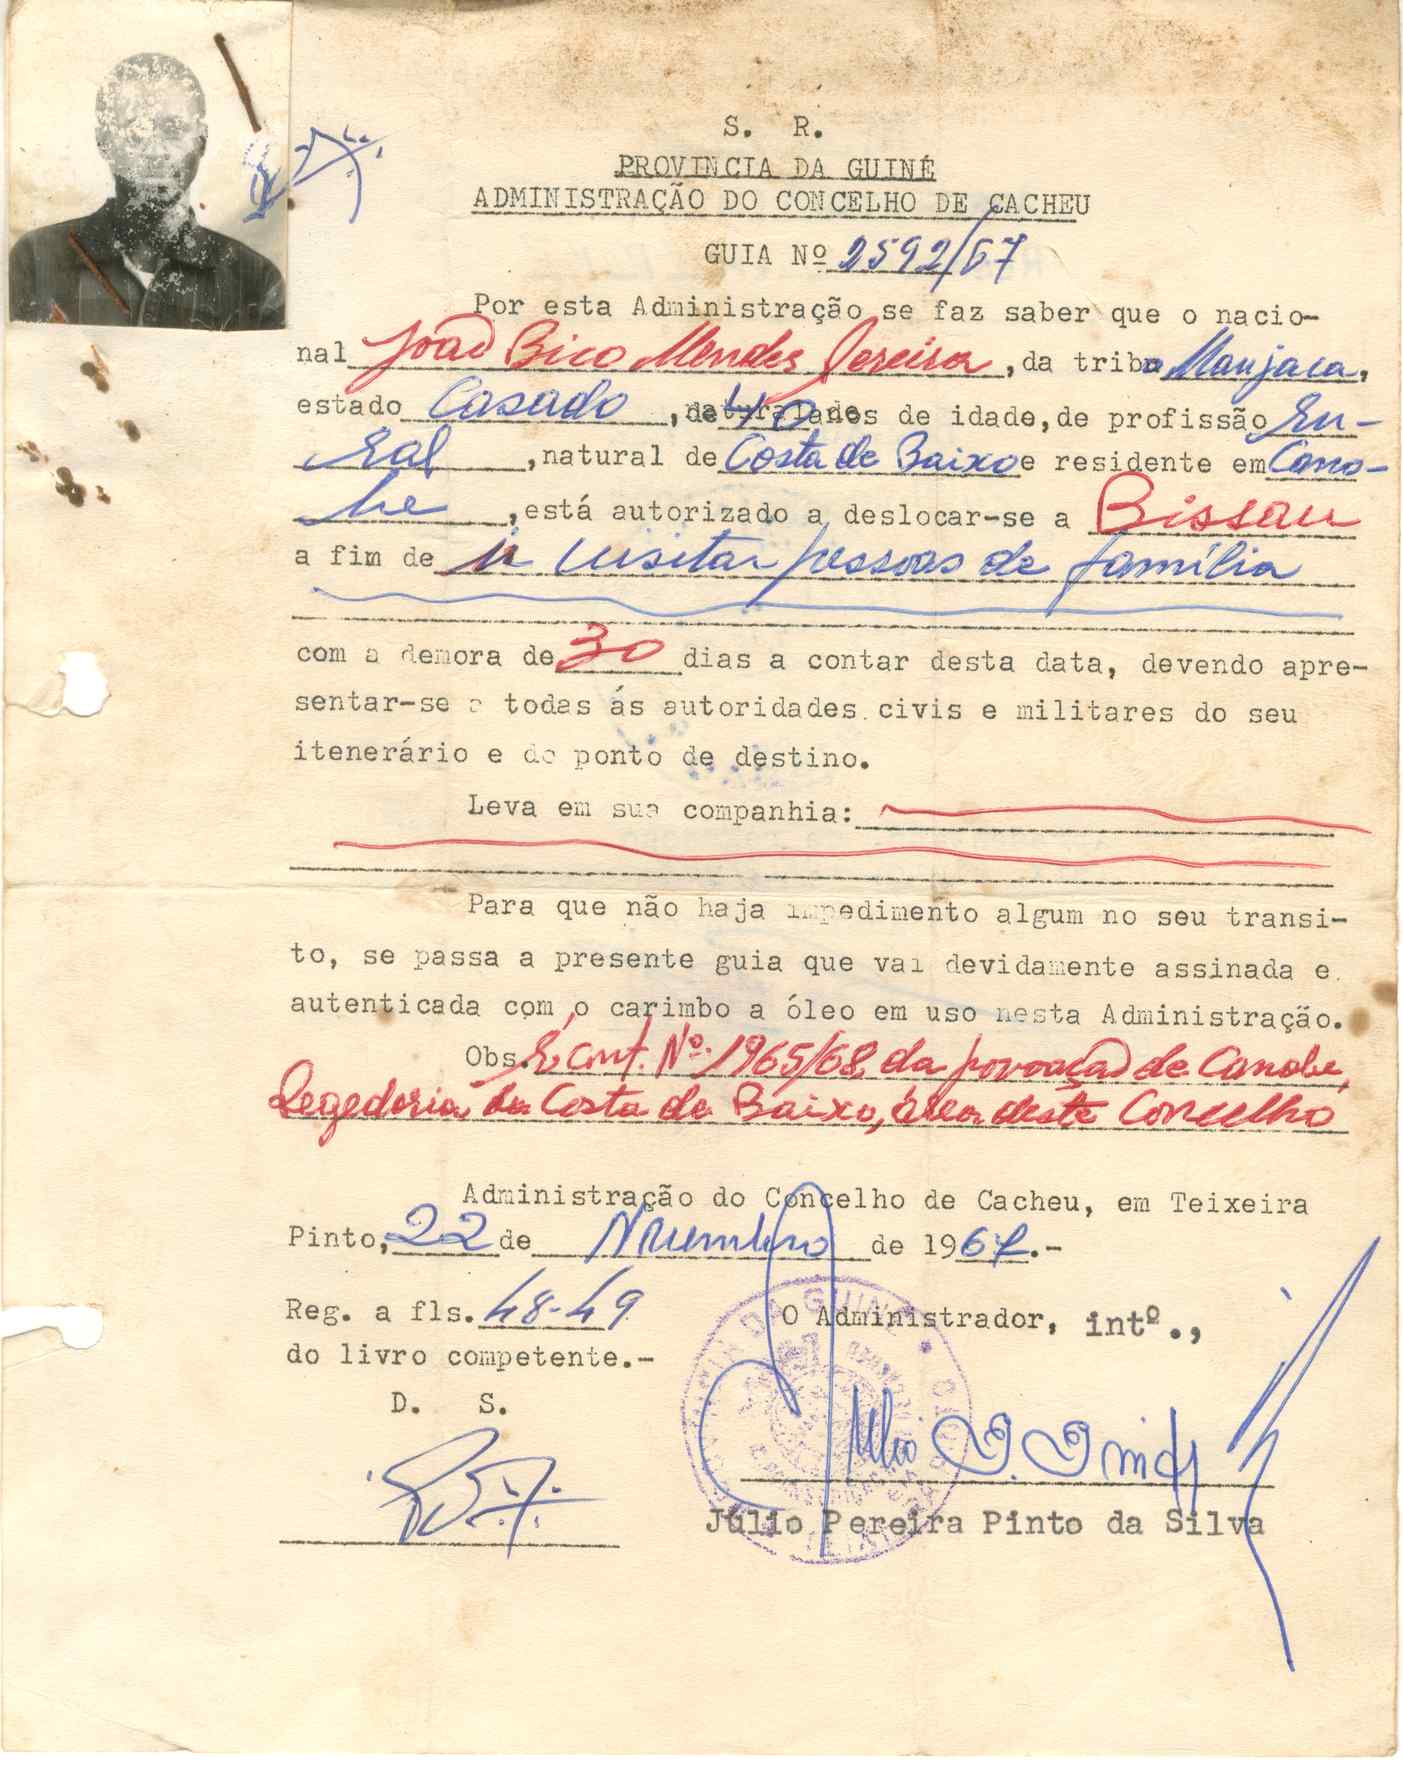 S. R.
PROVINCIA DA GUINÉ
ADMINISTRAÇÃO DO CONCELHO DE CACHEU
GUIA Nº 2592/67
Por esta Administração se faz saber que o nacio-
nal João Bico Mendes Pereira, da tribo Manjaca,
estado Casado, de 40 anos de idade, de profissão Ru-
ral, natural de Costa de Baixo e residente em Cano-
be, está autorizado a deslocar-se a Bissau
a fim de ir visitar pessoas de família
com a demora de 30 dias a contar desta data, devendo apre-
sentar-se a todas ás autoridades civis e militares do seu
itenerário e do ponto de destino.
Leva em sua companhia:
Para que não haja impedimento algum no seu transi-
to, se passa a presente guia que vai devidamente assinada e
autenticada com o carimbo a óleo em uso nesta Administração.
Obs. É cont. Nº. 1965/68, da povoação de Canobe,
Regedoria da Costa de Baixo, área deste Concelho
Administração do Concelho de Cacheu, em Teixeira
Pinto, 22 de Novembro de 1967.-
Reg. a fls. 48-49 O Administrador, intº.,
do livro competente.-
D. S.
Júlio Pereira Pinto da Silva